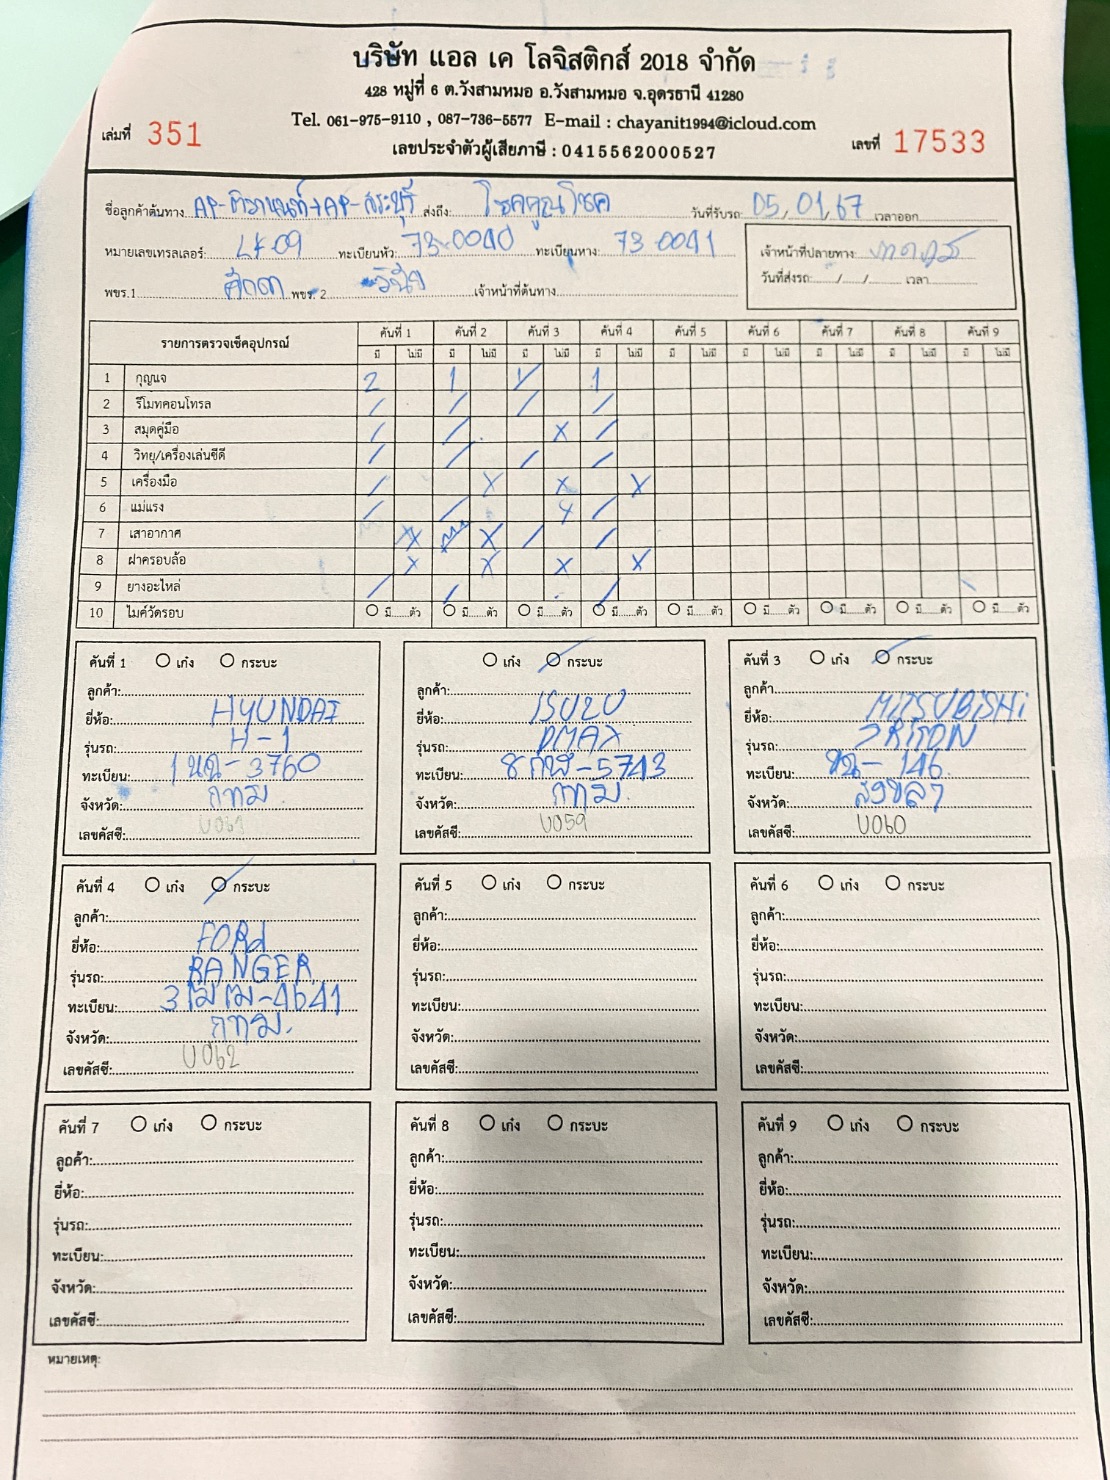 บริษัท แอล เค โลจิสติกส์ 2018 จำกัด
428 หมู่ที่ 6 ต.วังสามหมอ อ.วังสามหมอ จ.อุดรธานี 41280
Tel. 061-975-9110 , 087-736-5577 E-mail : chayanit1994@icloud.com
เล่มที่ 351 เลขประจำตัวผู้เสียภาษี : 0415562000527 เลขที่ 17533
ชื่อลูกค้าต้นทาง AP-ติวานนท์+AP-สระบุรี ส่งถึง: โชคคูณโชค วันที่รับรถ: 05/01/67 เวลาออก
หมายเลขเทรลเลอร์: LK 09 ทะเบียนหัว: 73-0040 ทะเบียนหาง: 73-0041 เจ้าหน้าที่ปลายทาง:
พขร.1 พขร. 2 วินัย เจ้าหน้าที่ต้นทาง วันที่ส่งรถ: / / เวลา
รายการตรวจเช็คอุปกรณ์ คันที่ 1 คันที่ 2 คันที่ 3 คันที่ 4 คันที่ 5 คันที่ 6 คันที่ 7 คันที่ 8 คันที่ 9
มี ไม่มี มี ไม่มี มี ไม่มี มี ไม่มี มี ไม่มี มี ไม่มี มี ไม่มี มี ไม่มี มี ไม่มี
1 กุญแจ 2 1 1 1
2 รีโมทคอนโทรล / / / /
3 สมุดคู่มือ / / X /
4 วิทยุ/เครื่องเล่นซีดี / / / /
5 เครื่องมือ / X X X
6 แม่แรง / / X /
7 เสาอากาศ X X / /
8 ฝาครอบล้อ X X X X
9 ยางอะไหล่ / / /
10 ไมค์วัดรอบ มี ตัว มี ตัว มี ตัว มี ตัว มี ตัว มี ตัว มี ตัว มี ตัว มี ตัว
คันที่ 1 เก๋ง กระบะ
ลูกค้า:
ยี่ห้อ: HYUNDAI
รุ่นรถ: H-1
ทะเบียน: 1นฉ-3760
จังหวัด: กทม
เลขคัสซี: U061
เก๋ง กระบะ
ลูกค้า:
ยี่ห้อ: ISUZU
รุ่นรถ: DMAX
ทะเบียน: 8กฬ-5743
จังหวัด: กทม.
เลขคัสซี: U059
คันที่ 3 เก๋ง กระบะ
ลูกค้า
ยี่ห้อ: MITSUBISHi
รุ่นรถ: TRITON
ทะเบียน: -146
จังหวัด: สงขลา
เลขคัสซี: U060
คันที่ 4 เก๋ง กระบะ
ลูกค้า:
ยี่ห้อ: FORd
รุ่นรถ: RANGER
ทะเบียน: 3ฒฒ-4641
จังหวัด: กทม.
เลขคัสซี: U062
คันที่ 5 เก๋ง กระบะ
ลูกค้า:
ยี่ห้อ:
รุ่นรถ:
ทะเบียน:
จังหวัด:
เลขคัสซี:
คันที่ 6 เก๋ง กระบะ
ลูกค้า:
ยี่ห้อ:
รุ่นรถ:
ทะเบียน:
จังหวัด:
เลขคัสซี:
คันที่ 7 เก๋ง กระบะ
ลูกค้า:
ยี่ห้อ:
รุ่นรถ:
ทะเบียน:
จังหวัด:
เลขคัสซี:
คันที่ 8 เก๋ง กระบะ
ลูกค้า:
ยี่ห้อ:
รุ่นรถ:
ทะเบียน:
จังหวัด:
เลขคัสซี:
คันที่ 9 เก๋ง กระบะ
ลูกค้า:
ยี่ห้อ:
รุ่นรถ:
ทะเบียน:
จังหวัด:
เลขคัสซี:
หมายเหตุ: